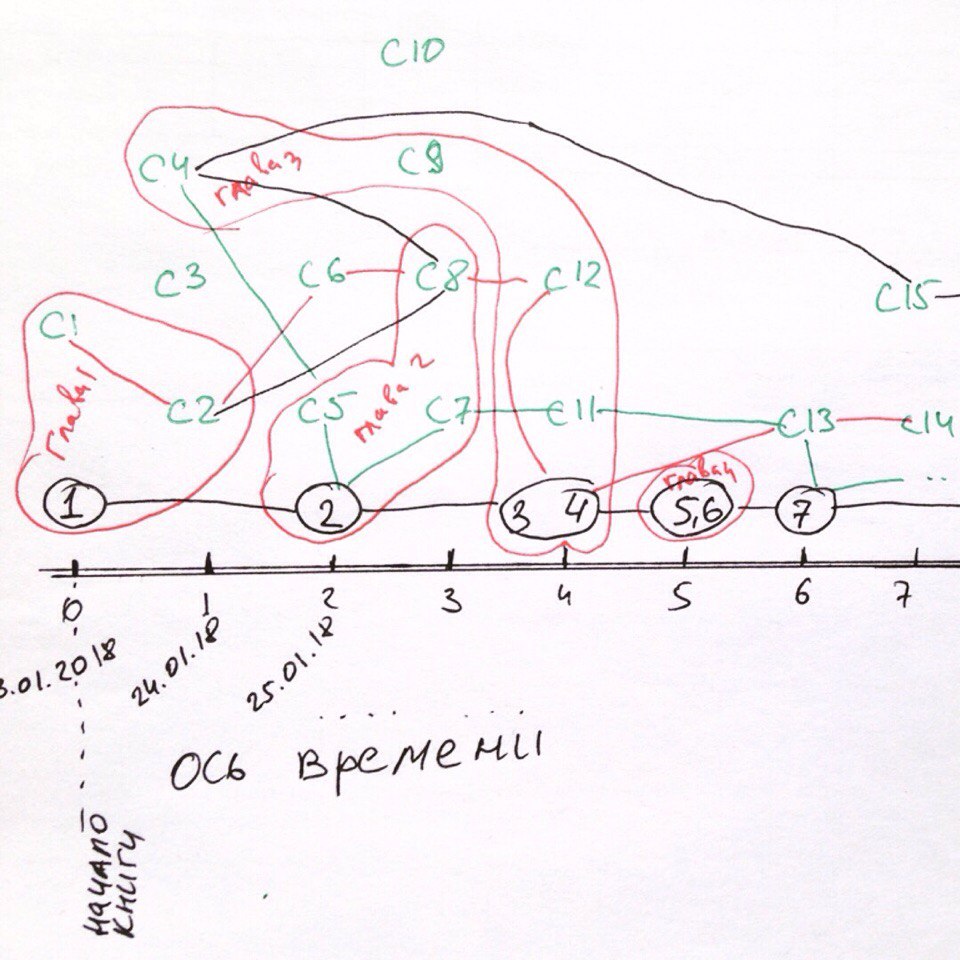 С10
С4
глава 3
С9
С3
С6
С8
С12
С15
С1
глава 1
С2
С5
глава 2
С7
С11
С13
С14
глава 4
1
2
3 4
5,6
7
0 1 2 3 4 5 6 7
3.01.2018
24.01.18
25.01.18
ось времени
начало
книги